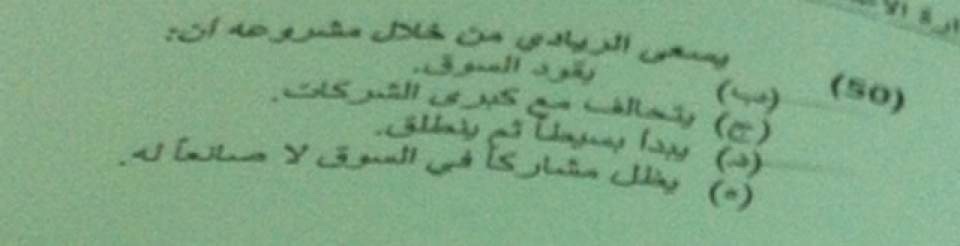 (50) يسعى الريادي من خلال مشروعه أن:
(ب) يقود السوق.
(ج) يتحالف مع كبرى الشركات.
(د) يبدأ بسيطاً ثم ينطلق.
(ه) يظل مشاركاً في السوق لا صانعاً له.